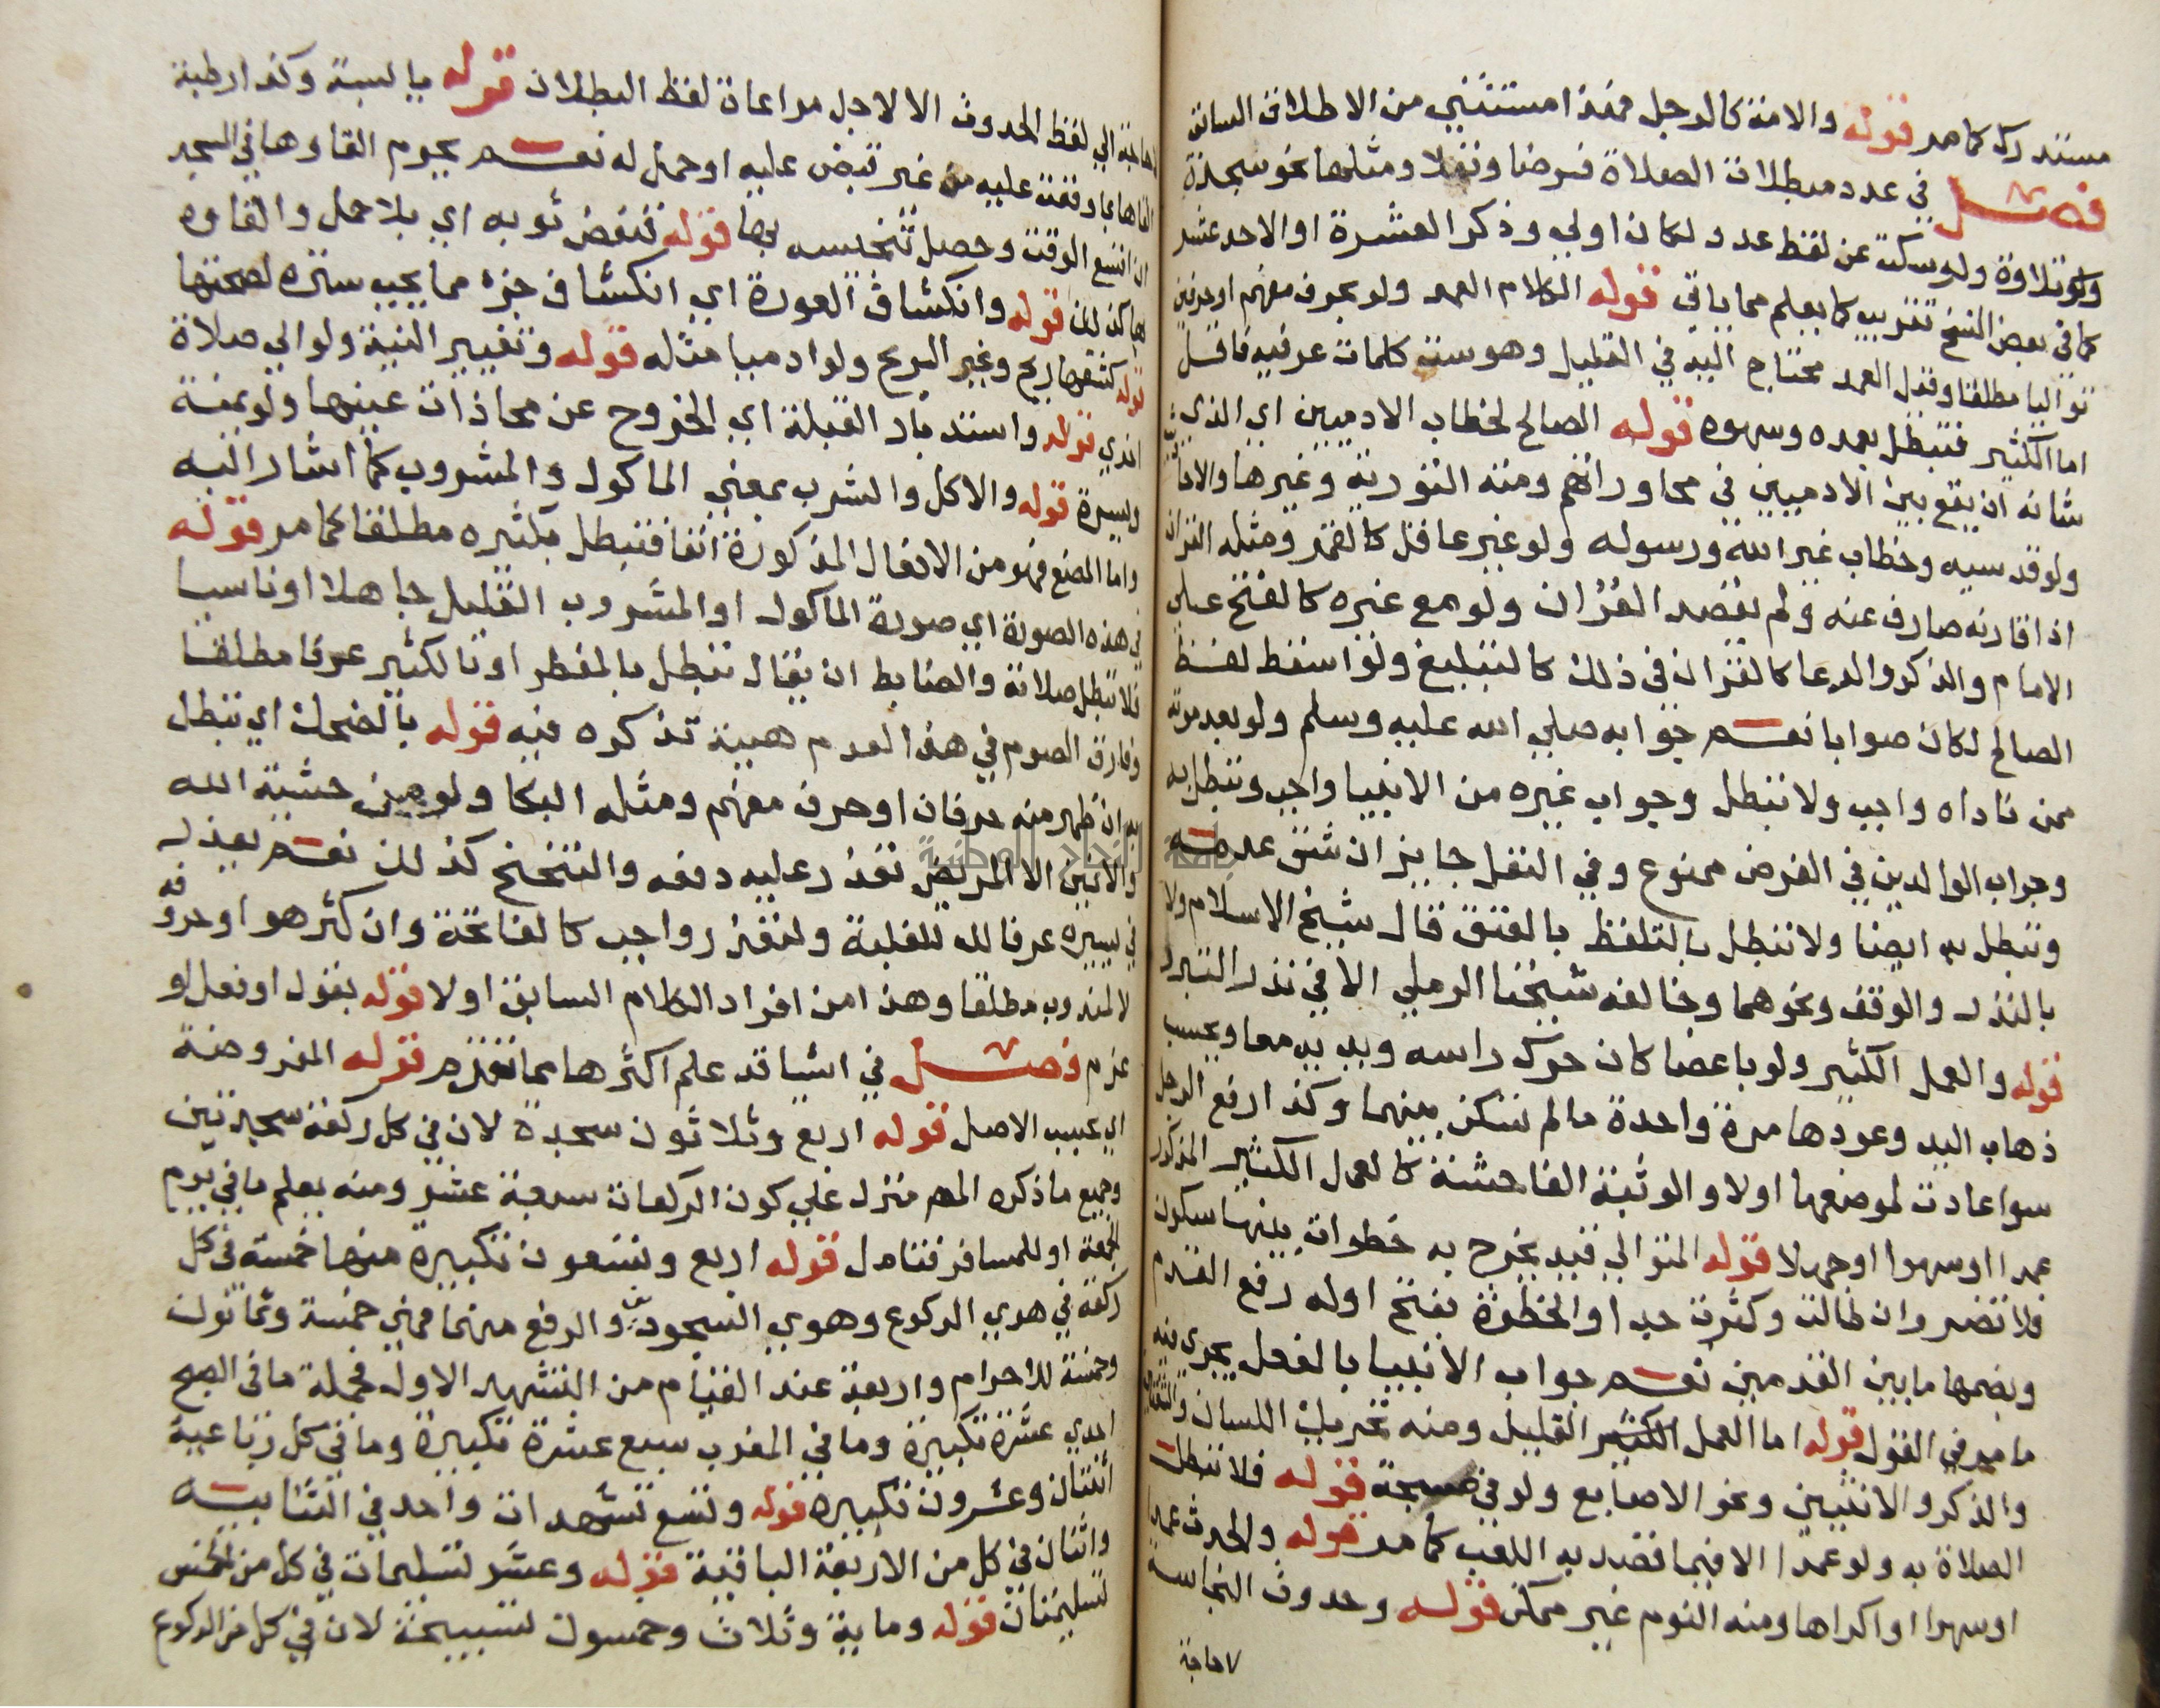 مستدرك كما مر قوله والامة كالرجل فهذا مستثني من الاطلاق السابق
فصل في عدد مبطلات الصلاة فرضا ونفلا ومثلها نحو سجدة
ولو تلاوة ولو سكت عن لفظ عدد لكان اولي وذكر العشرة او الاحد عشر
كما في بعض النسخ تقريب كما يعلم مما ياتي قوله الكلام العمد ولو بحرف مفهم او حرفين
تواليا مطلقا وقيل العمد محتاج اليه في القليل وهو ستة كلمات عرفية فاقل
اما الكثير فتبطل بعمده وسهوه قوله الصالح لخطاب الادميين اي الذي
شانه ان يقع بين الادميين في محاوراتهم ومنه التورية وغيرها والاحا
ولو قدسيه وخطاب غير الله ورسوله ولو غير عاقل كالقمر ومثله القران
اذا قارنه صارف عنه ولم يقصد القران ولو مع غيره كالفتح علي
الامام والذكر والدعا كالقران في ذلك كالتبليغ ولو اسقط لفظ
الصالح لكان صوابا نعم جوابه صلي الله عليه وسلم ولو بعد موته
ممن ناداه واجب ولا تبطل وجواب غيره من الانبيا واجب وتبطل به
وجواب الوالدين في الفرض ممنوع وفي النفل جايز ان شق عدمه
وتبطل به ايضا ولا تبطل بالتلفظ بالعتق قال شيخ الاسلام ولا
بالنذر والوقف ونحوهما وخالفه شيخنا الرملي الا في نذر التبرر
قوله والعمل الكثير ولو باعضا كان حرك راسه ويديه معا ويحسب
ذهاب اليد وعودها مرة واحدة ما لم تسكن بينهما وكذا رفع الرجل
سوا عادت لموضعها اولا والوثبة الفاحشة كالعمل الكثير المذكور
عمدا او سهوا او جهلا قوله المتوالي قيد يخرج به خطوات بينها سكون
فلا تضر وان طالت وكثرت جدا والخطوة بفتح اوله رفع القدم
وبضمها ما بين القدمين نعم جواب الانبيا بالفعل يجري فيه
ما مر في القول قوله اما العمل القليل ومنه تحريك اللسان والشفتين
والذكر والانثيين ونحو الاصابع ولو في سبحة قوله فلا تبطل
الصلاة به ولو عمدا الا فيما قصد به اللعب كما مر قوله والحدث عمدا
او سهوا او اكراها ومنه النوم غير ممكن قوله وحدوث النجاسة
لا حاجة
لا حاجة الي لفظ الحدوث الا لاجل مراعاة لفظ البطلان قوله يابسة وكذا رطبة
القاها بما وقعت عليه من غير قبض عليه او حمل له نعم يحرم القاوها في المسجد
ان اتسع الوقت وحصل تنجيسه بها قوله فنفض ثوبه اي بلا حمل والقاوه
بها كذلك قوله وانكشاف العورة اي انكشاف جزء مما يجب ستره لصحتها
قوله كشفها ريح وغير الريح ولو ادميا مثله قوله وتغيير النية ولو الي صلاة
اخري قوله واستدبار القبلة اي الخروج عن محاذات عينها ولو يمنة
ويسرة قوله والاكل والشرب بمعني الماكول والمشروب كما اشار اليه
واما المضغ فهو من الافعال المذكورة انفا فتبطل بكثيره مطلقا كما مر قوله
في هذه الصورة اي صورة الماكول او المشروب القليل جاهلا او ناسيا
فلا تبطل صلاته والضابط ان يقال تبطل بالمفطر او بالكثير عرفا مطلقا
وفارق الصوم في هذا لعدم هيية تذكره فيه قوله بالضحك اي تبطل
به ان ظهر منه حرفان او حرف مفهم ومثله البكا ولو من خشية الله
والانين الا المريض تعذر عليه دفعه والتنحنح كذلك نعم يعذر
في يسيره عرفا لله للغلبة ولتعذر واجب كالفاتحة وان كثر هو او حروفه
لا لمندوب مطلقا وهذا من افراد الكلام السابق اولا قوله بقول او فعل او
عزم فصل في اشيا قد علم اكثرها مما تقدم قوله المفروضة
اي بحسب الاصل قوله اربع وثلاثون سجدة لان في كل ركعة سجدتين
وجميع ما ذكره المص منزل علي كون الركعات سبعة عشر ومنه يعلم ما في يوم
الجمعة او للمسافر فتامل قوله اربع وتسعون تكبيرة منها خمسة في كل
ركعة في هوي الركوع وهوي السجودين والرفع منهما فهي خمسة وثمانون
وخمسة للاحرام واربعة عند القيام من التشهد الاول فجملة ما في الصبح
احدي عشرة تكبيرة وما في المغرب سبع عشرة تكبيرة وما في كل رباعية
اثنتان وعشرون تكبيرة قوله وتسع تشهدات واحد في الثنايية
واثنان في كل من الاربعة الباقية قوله وعشر تسليمات في كل من الخمس
تسليمتان قوله وماية وثلاث وخمسون تسبيحة لان في كل من الركوع